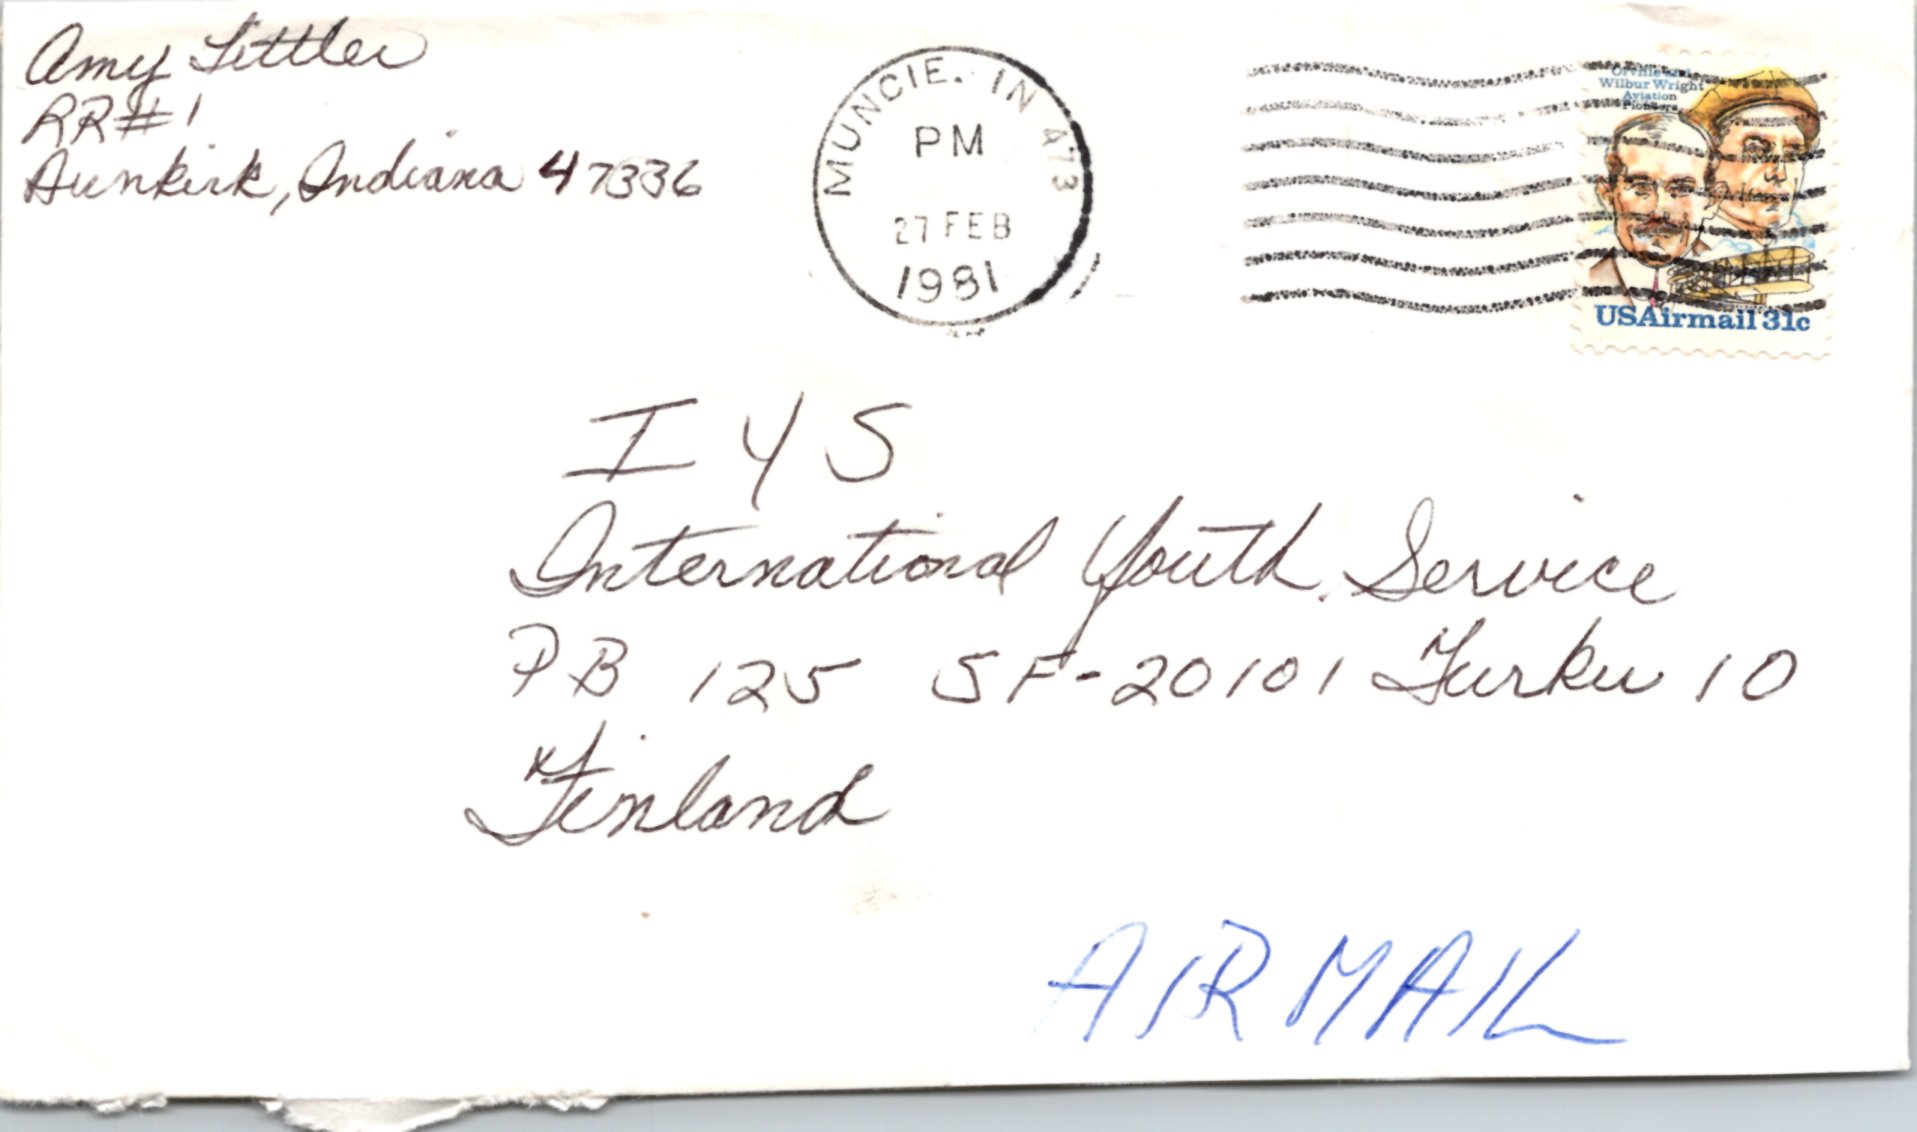 Amy Littler
RR#1
Dunkirk, Indiana 47336
MUNCIE. IN 473
PM
27 FEB
1981
Orville and
Wilbur Wright
Aviation
Pioneers
USAirmail 31c
I Y S
International Youth Service
PB 125 SF-20101 Turku 10
Finland
AIR MAIL